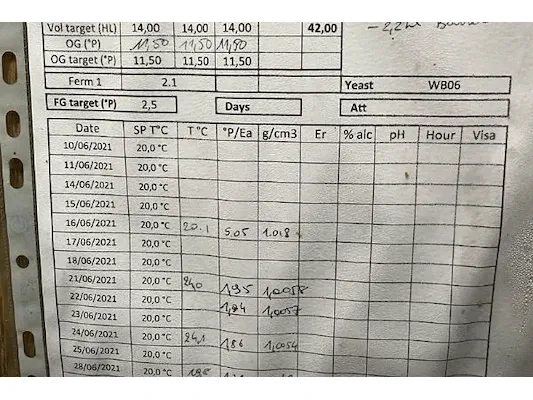 Vol target (HL) 14,00 14,00 14,00 42,00
OG (°P) 11,50 11,50 11,90
OG target (°P) 11,50 11,50 11,50
Ferm 1 2.1 Yeast WB06
FG target (°P) 2,5 Days Att
Date SP T°C T°C °P/Ea g/cm3 Er % alc pH Hour Visa
10/06/2021 20,0 °C
11/06/2021 20,0 °C
14/06/2021 20,0 °C
15/06/2021 20,0 °C
16/06/2021 20,0 °C 20.1 5.05 1.018
17/06/2021 20,0 °C
18/06/2021 20,0 °C
21/06/2021 20,0 °C 240 1,95 1,0058
22/06/2021 20,0 °C 1,94 1,0057
23/06/2021 20,0 °C
24/06/2021 20,0 °C 24,1 1,86 1,0054
25/06/2021 20,0 °C
28/06/2021 20,0 °C 19,5